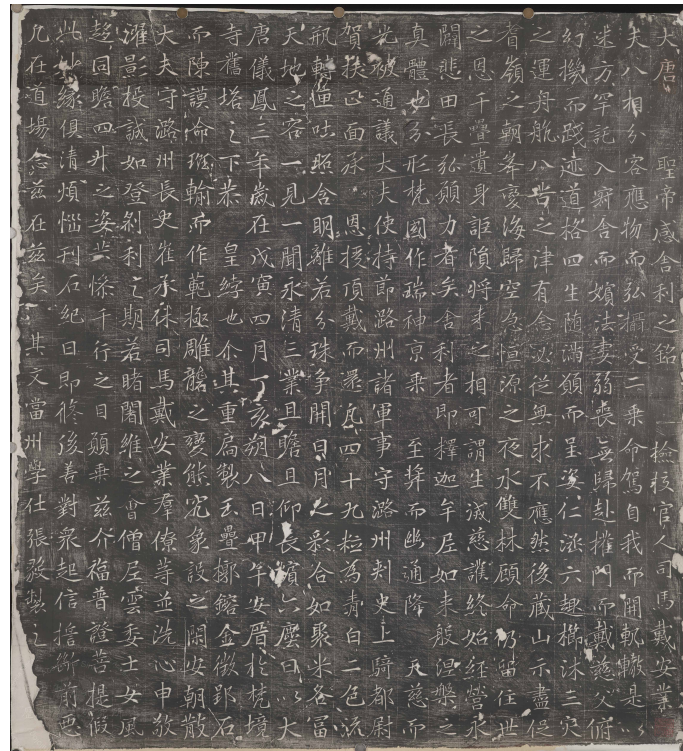 大唐 聖帝感舍利之銘 撿挍官人司馬戴安業
夫八相分容應物而弘攝受二乘命駕自我而開軌轍是以
迷方罕託入窮舍而嬪法妻弱喪無歸赴權門而戴慈父俯
幻機而踐迹道格四生随滿願而呈姿仁涵六趣櫛沐三灾
之運舟航八苦之津有念必從無求不應然後藏山示盡促
耆嶺之朝峯變海歸空忽恒源之夜水雙林顧命仍留住世
之恩千疊遺身詎隕將来之相可謂生滅慈護終始經營永
闢悲田長弘願力者矣舍利者即釋迦牟尼如来般涅槃之
真體也分形梵國作瑞神京乘 至而幽通降 天慈而
光被通議大夫使持節潞州諸軍事守潞州刾史上騎都尉
賀拔正面承 恩授頂戴而還凡四十九粒為青白二色流
瓶轉匣吐照含明離若分珠争開日月之彩合如聚米各冨
天地之容一見一聞永清三業且瞻且仰長擯六塵曰以大
唐儀鳳三年歲在戊寅四月丁亥朔八日甲午安厝於梵境
寺舊塔之下恭 皇綍也尒其重扃製玉疊槨鎔金徵郢石
而陳謨命班輸而作範極雕礱之變態究象設之閑安朝散
大夫守潞州長史崔承休司馬戴安業群僚等並洗心申敬
濯影投誠如登刹利之期若睹闍維之會僧尼雲委士女風
趍同瞻四升之姿共悕千行之目願乘兹介福普證菩提假
此妙緣俱清煩惱刊石紀日即修後善對衆起信揔斷前恶
凡在道場念兹在兹矣 其文當州學仕張毅製之